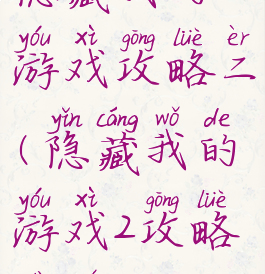 yóu xì gōng lüè èr
游戏攻略二
yǐn cáng wǒ de
(隐藏我的
yóu xì gōng lüè
游戏2攻略